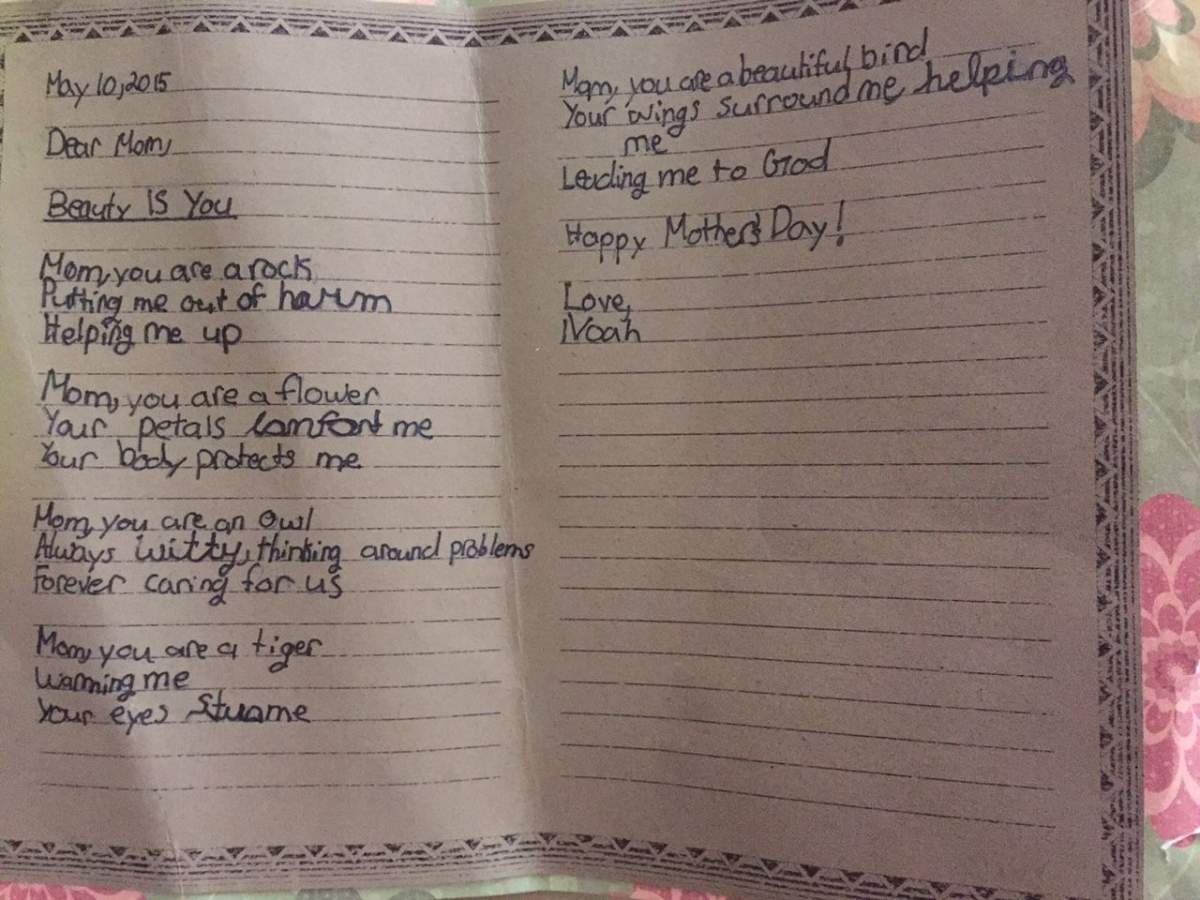 May 10, 2015
Dear Mom,
Beauty Is You
Mom, you are a rock
Putting me out of harm
Helping me up
Mom, you are a flower
Your petals comfort me
Your body protects me
Mom, you are an owl
Always witty, thinking around problems
Forever caring for us
Mom, you are a tiger
Warming me
Your eyes
Mom, you are a beautiful bird
Your wings surround me helping
me
Leading me to God
Happy Mother's Day!
Love,
Noah